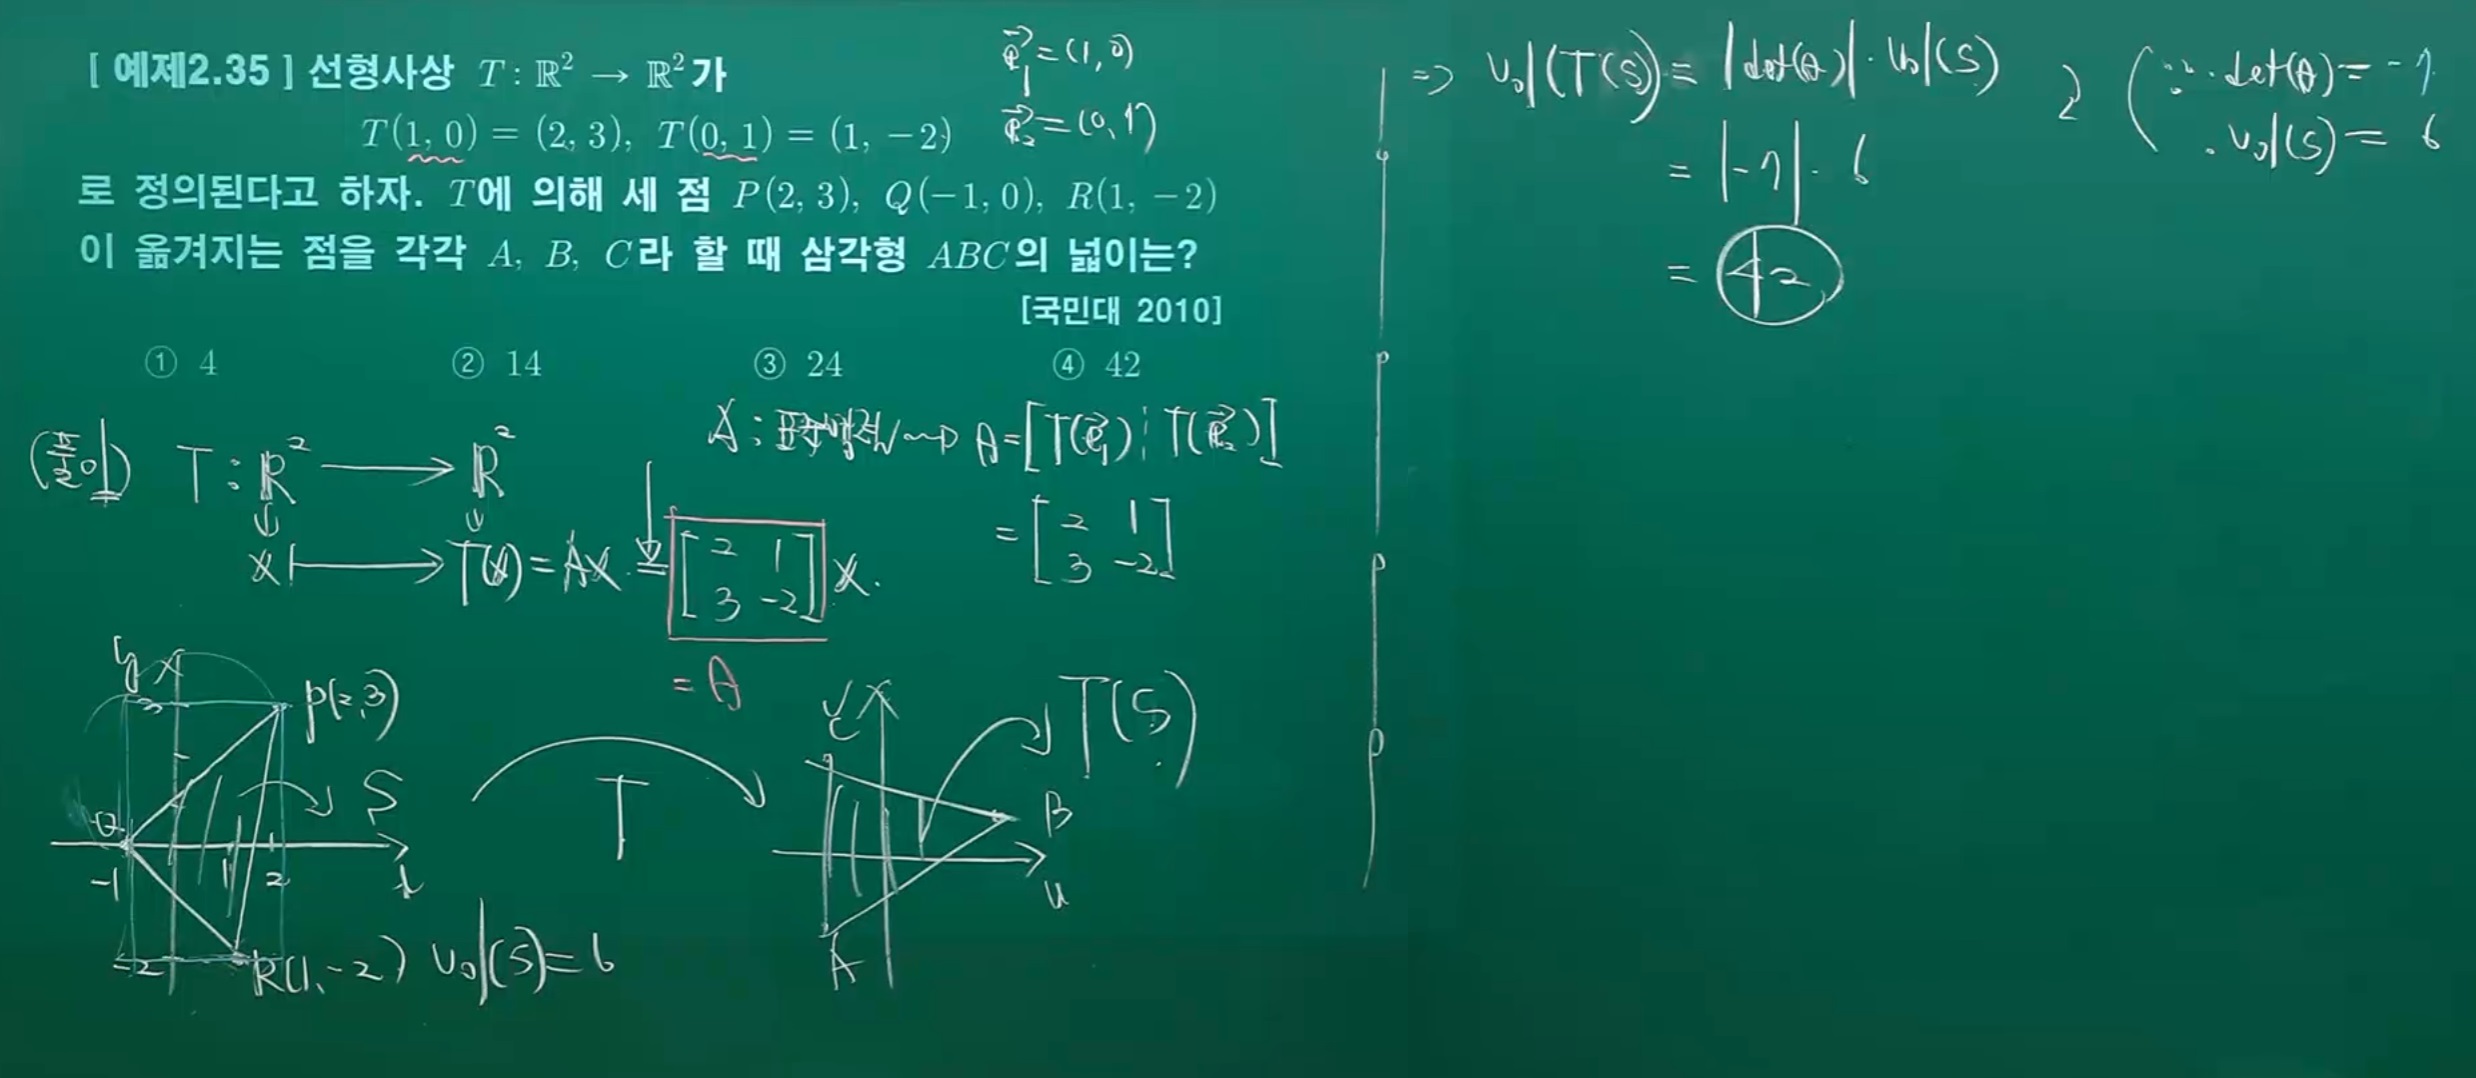 [ 예제2.35 ] 선형사상 T : ℝ² → ℝ²가
T(1, 0) = (2, 3), T(0, 1) = (1, −2)
로 정의된다고 하자. T에 의해 세 점 P(2, 3), Q(−1, 0), R(1, −2)
이 옮겨지는 점을 각각 A, B, C라 할 때 삼각형 ABC의 넓이는?
[국민대 2010]
① 4 ② 14 ③ 24 ④ 42
e₁ = (1, 0)
e₂ = (0, 1)
(풀이) T : ℝ² → ℝ²
x ↦ T(x) = Ax = [2 1
3 -2] x.
= A
A : 표준행렬 ⇝ A = [T(e₁) ⋮ T(e₂)]
= [2 1
3 -2]
y
3
P(2, 3)
S
Q
-1 1 2
x
-2
R(1, -2)
vol(S) = 6
T
v
C
T(S)
B
u
A
⇒ vol(T(S)) = |det(A)| · vol(S)
= |-7| · 6
= 42
(∵ · det(A) = -7
· vol(S) = 6